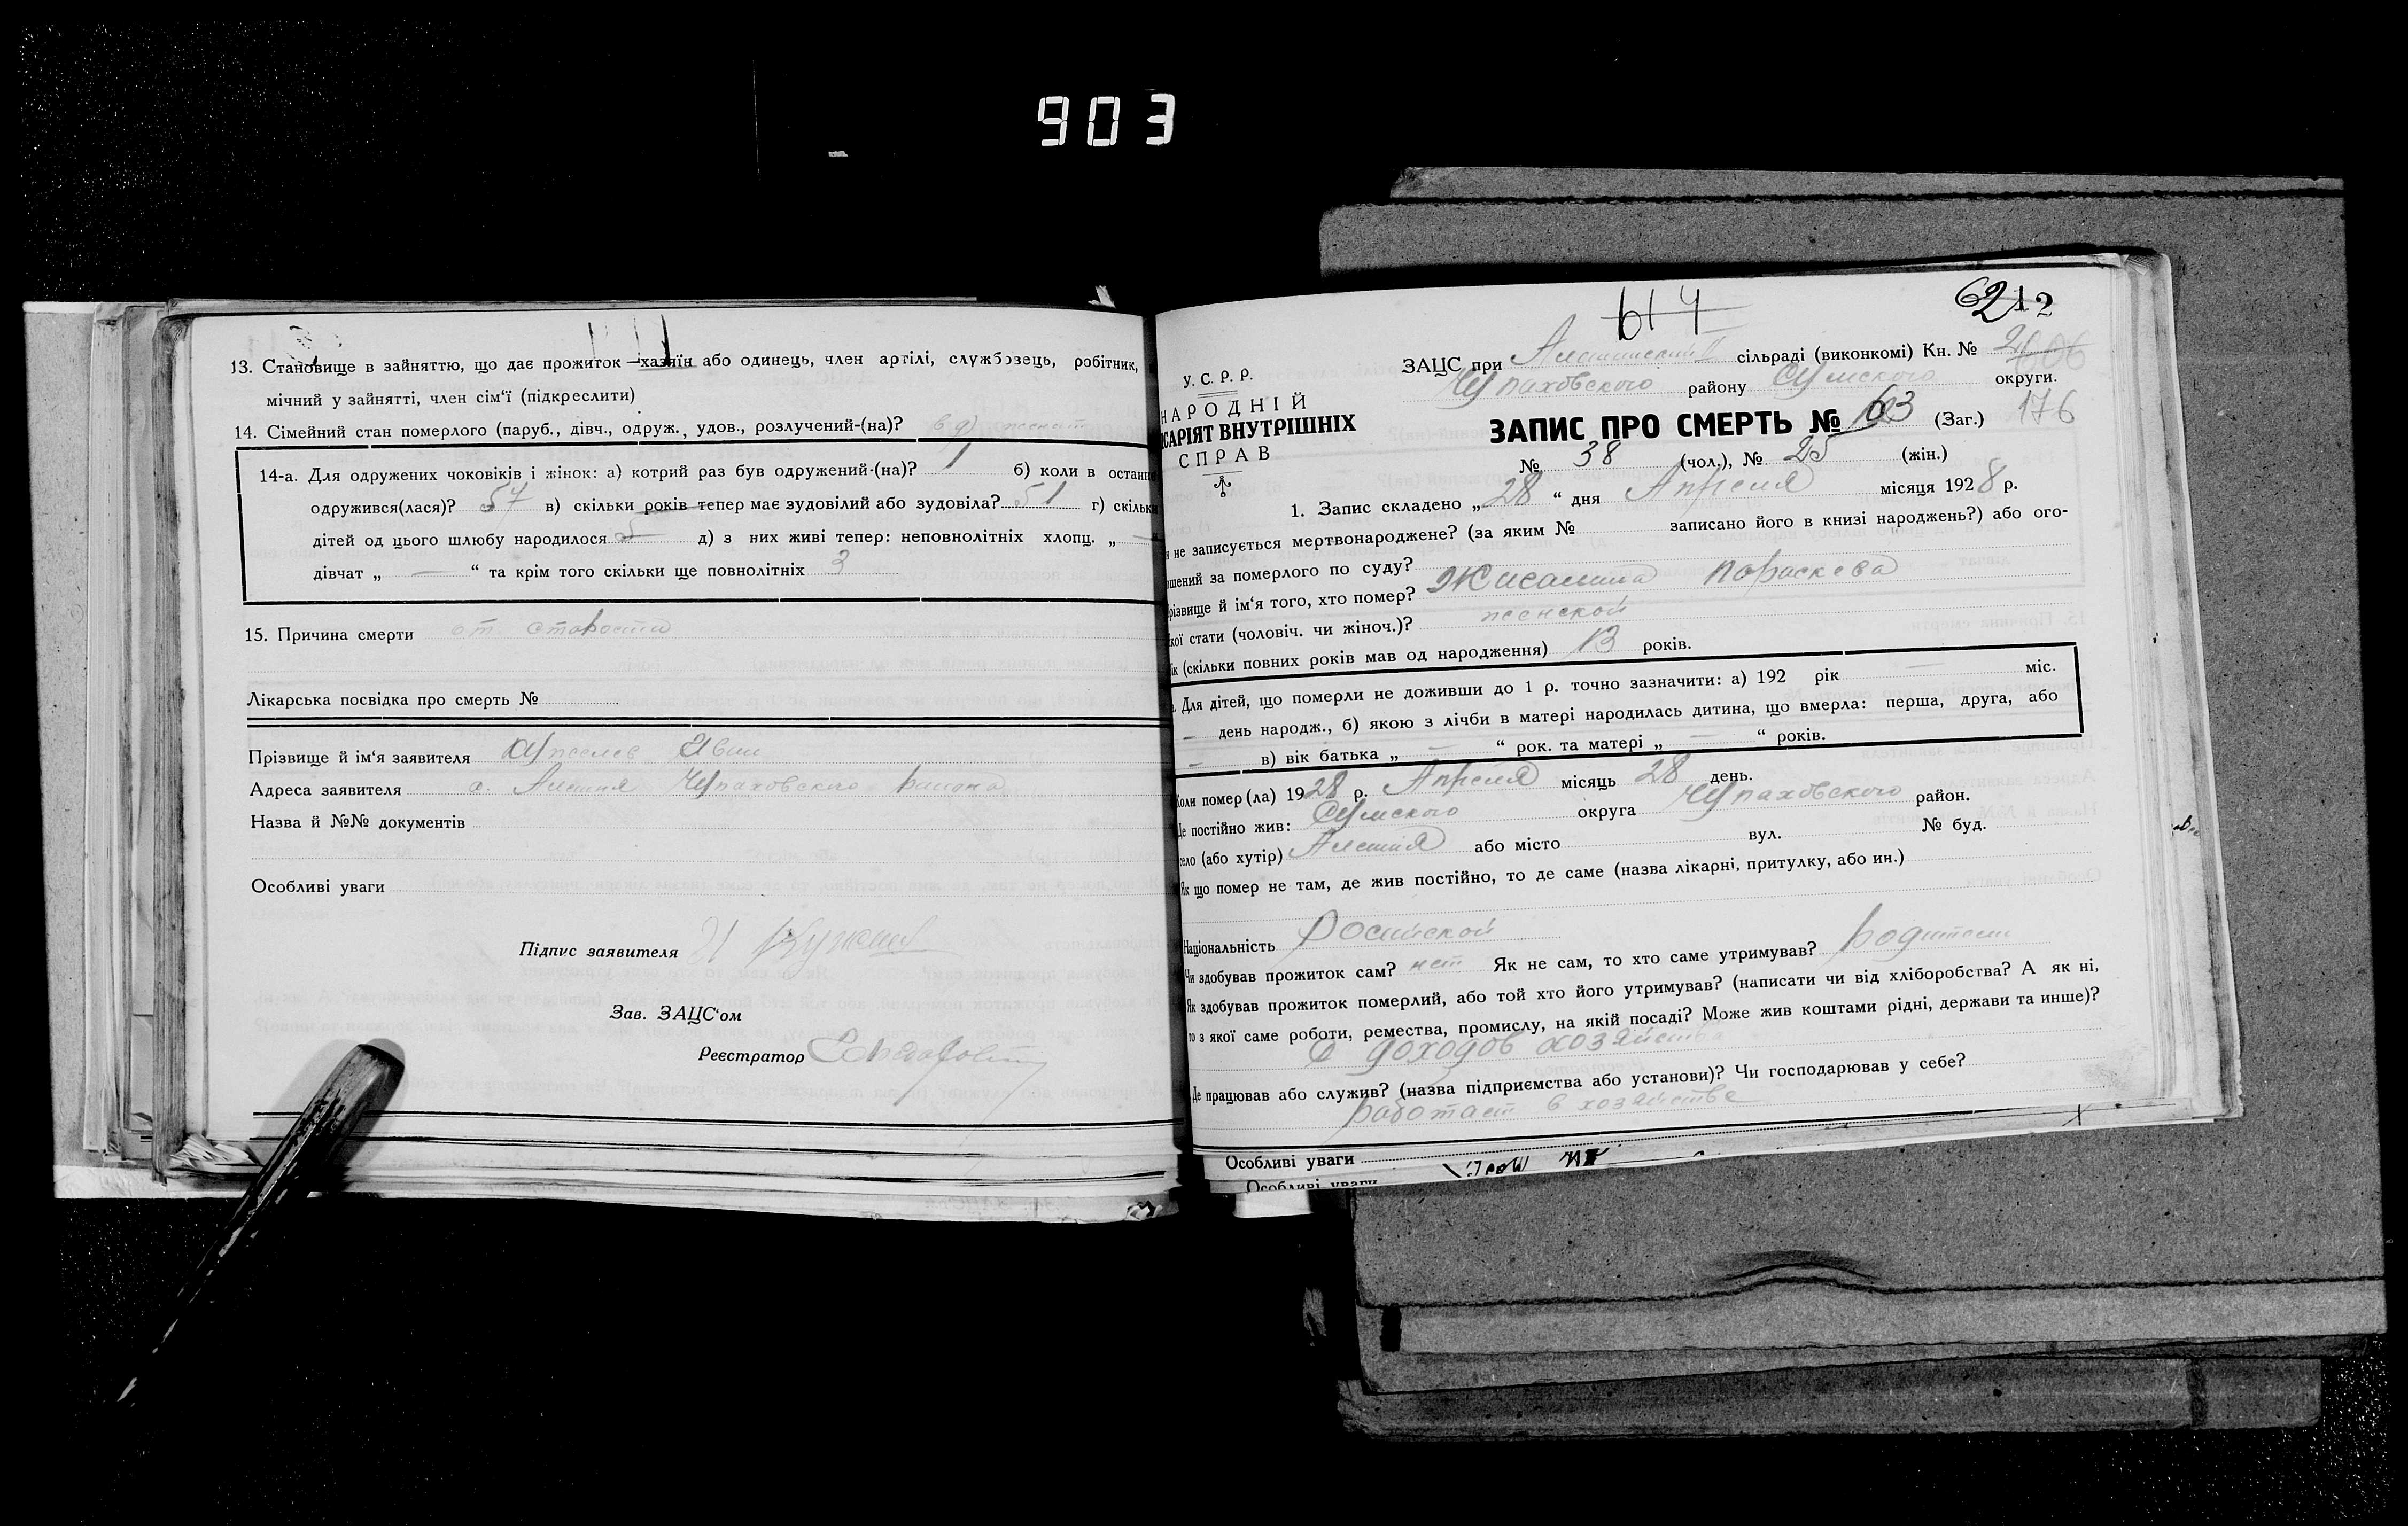 903
13. Становище в зайняттю, що дає прожиток —хазяїн або одинець, член артілі, службовець, робітник,
мічний у зайнятті, член сім'ї (підкреслити)
14. Сімейний стан померлого (паруб., дівч., одруж., удов., розлучений-(на)?
14-а. Для одружених чоковіків і жінок: а) котрий раз був одружений-(на)? 1 б) коли в останн
одружився(лася)? 57 в) скільки років тепер має зудовілий або зудовіла? 51 г) скільки
дітей од цього шлюбу народилося 5 д) з них живі тепер: неповнолітніх хлопц. „ —
дівчат „ — “ та крім того скільки ще повнолітніх 3
15. Причина смерти от старости
Лікарська посвідка про смерть №
Прізвище й ім'я заявителя Иван
Адреса заявителя с. Алешня Чупаховского района
Назва й №№ документів
Особливі уваги
Підпис заявителя И
Зав. ЗАЦС'ом
Реєстратор
614
62 212
У. С. Р. Р.
НАРОДНІЙ
САРІЯТ ВНУТРІШНІХ
СПРАВ
ЗАЦС при Алешинский II сільраді (виконкомі) Кн. № 2
606
Чупаховского району Сумского округи.
ЗАПИС ПРО СМЕРТЬ № 63 (Заг.) 176
№ 38 (чол.), № 25 (жін.)
1. Запис складено „ 28 “ дня Апреля місяця 1928 р.
и не записується мертвонароджене? (за яким № записано його в книзі народжень?) або ого-
ошений за померлого по суду?
різвище й ім'я того, хто помер? Параскева
кої стати (чоловіч. чи жіноч.)? женской
ік (скільки повних років мав од народження) 13 років.
Для дітей, що померли не доживши до 1 р. точно зазначити: а) 192 рік — міс.
— день народж., б) якою з лічби в матері народилась дитина, що вмерла: перша, друга, або
— в) вік батька „ — “ рок. та матері „ — “ років.
Коли помер (ла) 1928 р. Апреля місяць 28 день.
Де постійно жив: Сумского округа Чупаховского район.
село (або хутір) Алешня або місто вул. № буд.
Як що помер не там, де жив постійно, то де саме (назва лікарні, притулку, або ин.)
Національність Росийской
Чи здобував прожиток сам? нет Як не сам, то хто саме утримував? Родители
Як здобував прожиток померлий, або той хто його утримував? (написати чи від хліборобства? А як ні,
то з якої саме роботи, ремества, промислу, на якій посаді? Може жив коштами рідні, держави та инше)?
С доходов хозяйства
Де працював або служив? (назва підприємства або установи)? Чи господарював у себе?
работает в хозяйстве
Особливі уваги
Особливі уваги